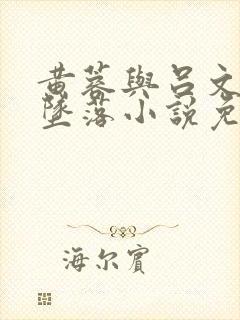 黃蓉與呂文
墜落小說免
海尔賓